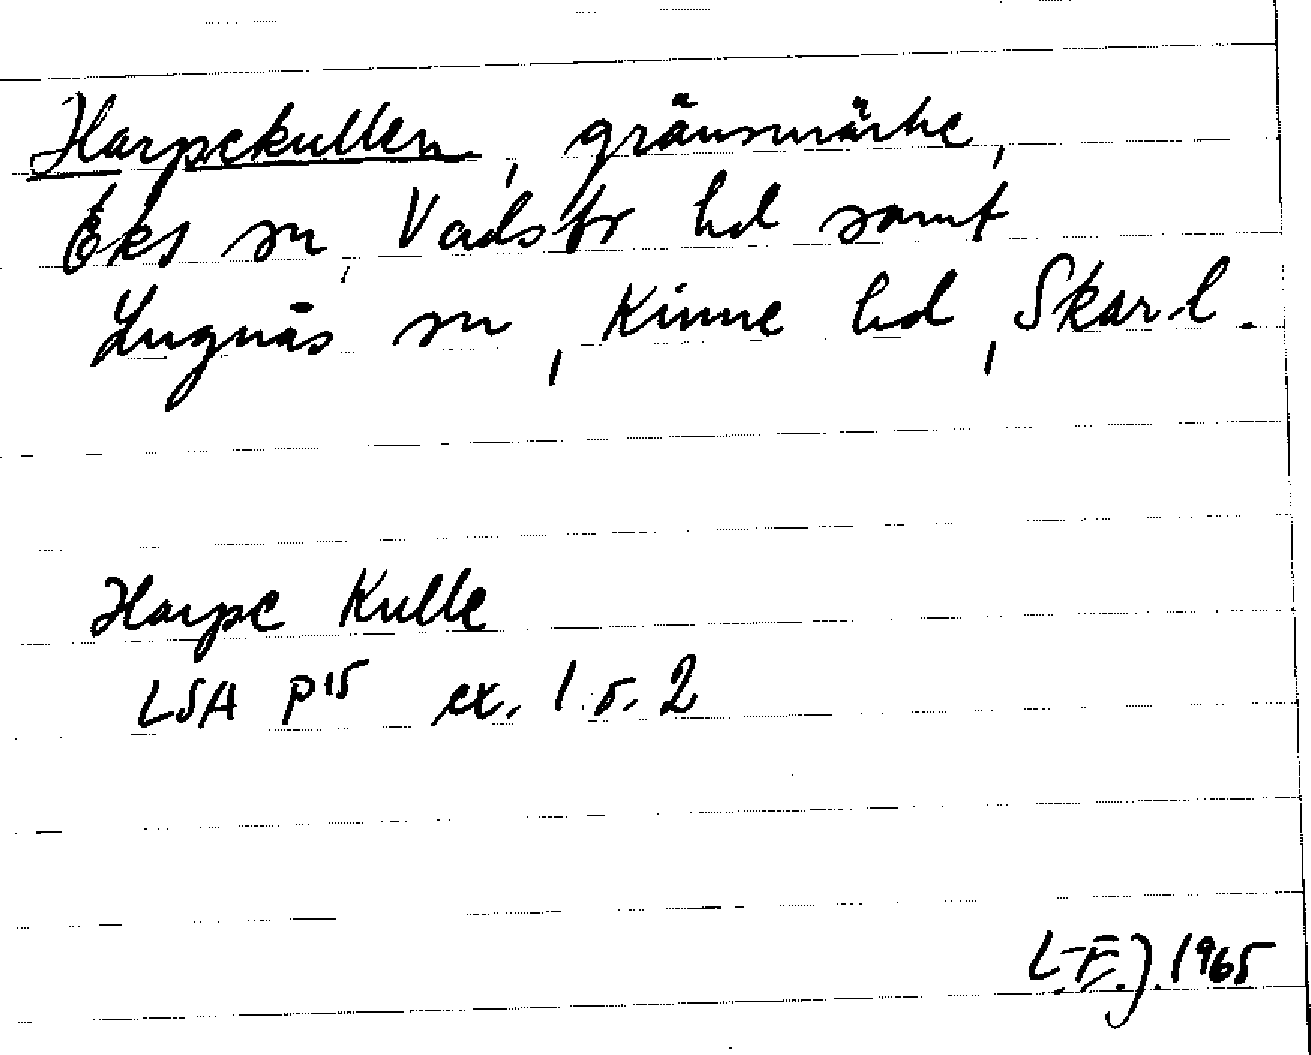 Harpekullen, gränsmärke,
Eks sn, Vadsbr hd samt
Lugnås sn, Kinne hd, Skar. l.
Harpe Kulle
LSA P15 ex. 1. s. 2
L-E.J. 1965